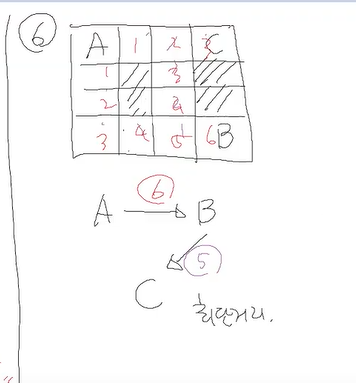 6
A 1 2 C
1 3
2 4
3 4 5 6 B
6
A → B
5
C
최단거리.